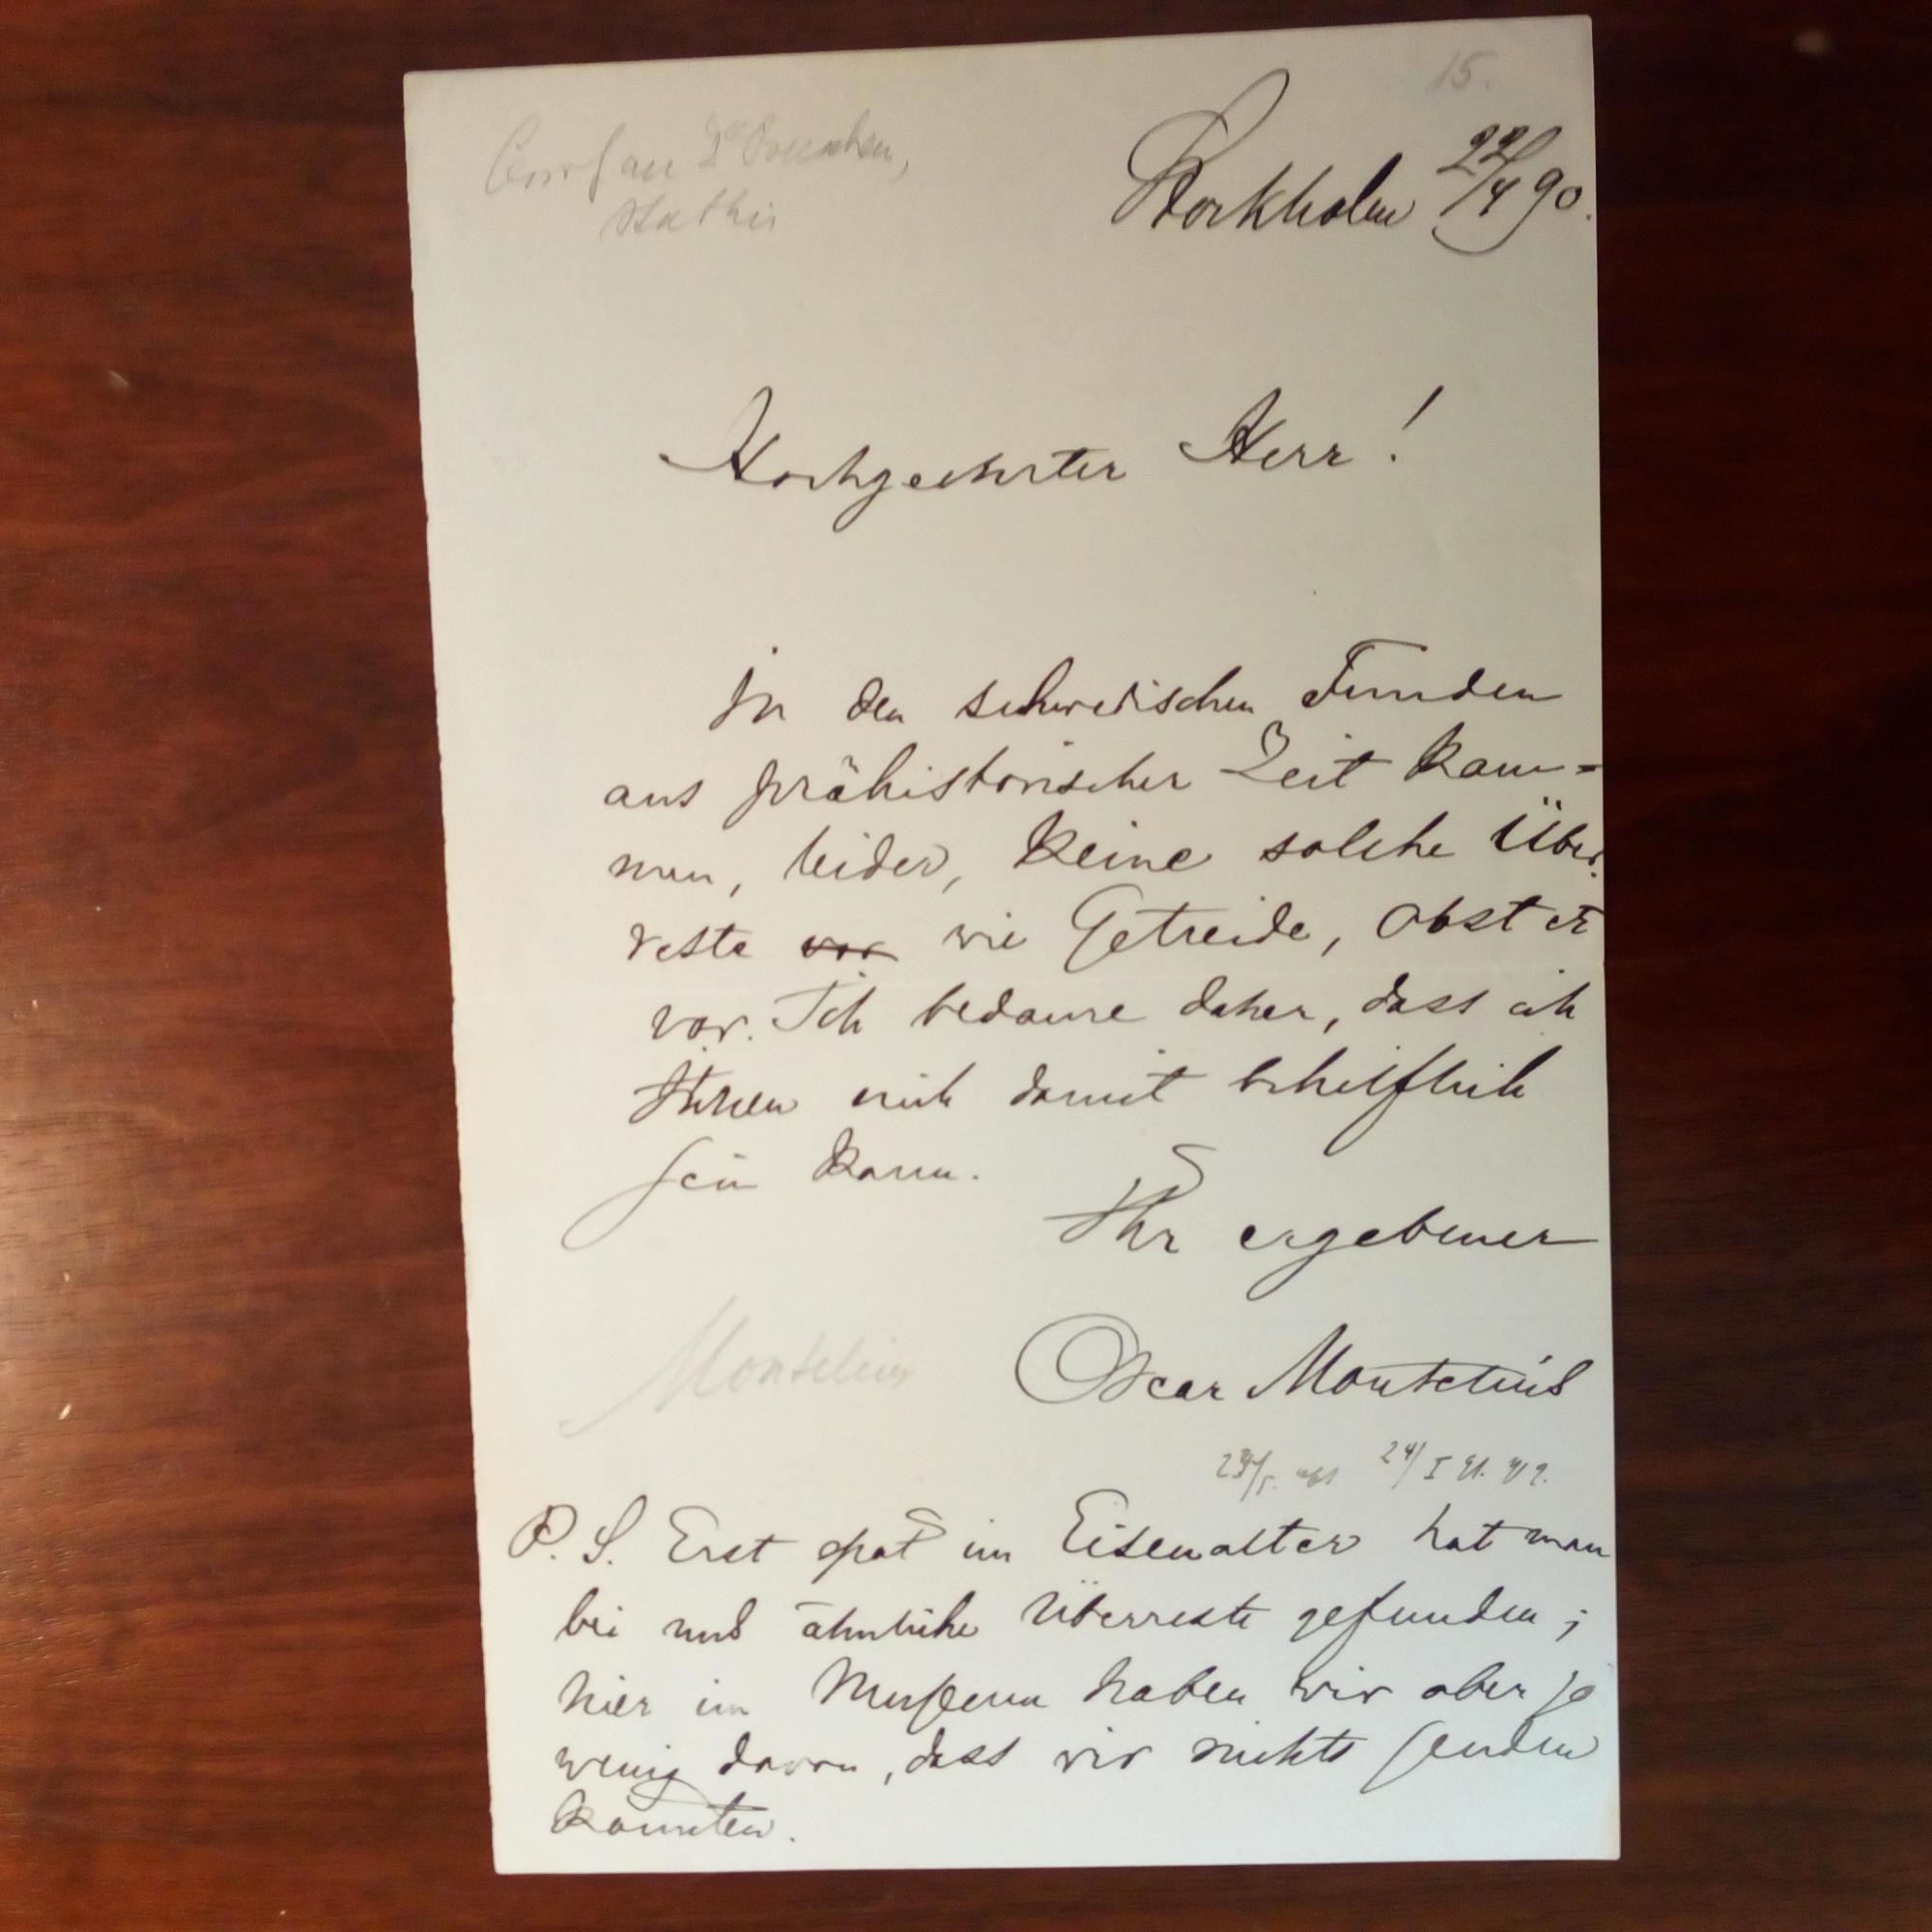 15.
Stockholm 22/4 90.
Hochgeehrter Herr!
In den schwedischen Funden
aus prähistorischer Zeit kom-
men, leider, keine solche Über-
reste vor wie Getreide, Obst etc
vor. Ich bedaure daher, dass ich
Ihnen nich damit behilflich
sein kann.
Ihr ergebener
Oscar Montelius
Montelius
P. S. Erst spät im Eisenalter hat man
bei uns ähnliche Überreste gefunden;
hier im Museum haben wir aber so
wenig davon, dass wir nichts senden
konnten.